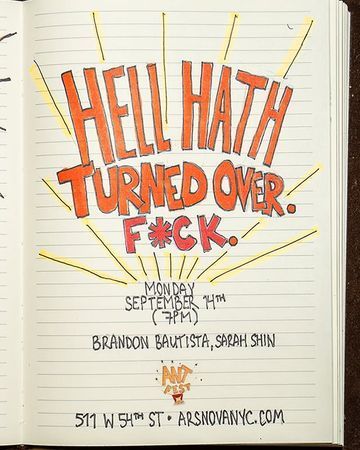 HELL HATH
TURNED OVER.
F*CK.
MONDAY
SEPTEMBER 14TH
(7PM)
BRANDON BAUTISTA, SARAH SHIN
ANT
FEST
511 W 54TH ST • ARSNOVANYC.COM